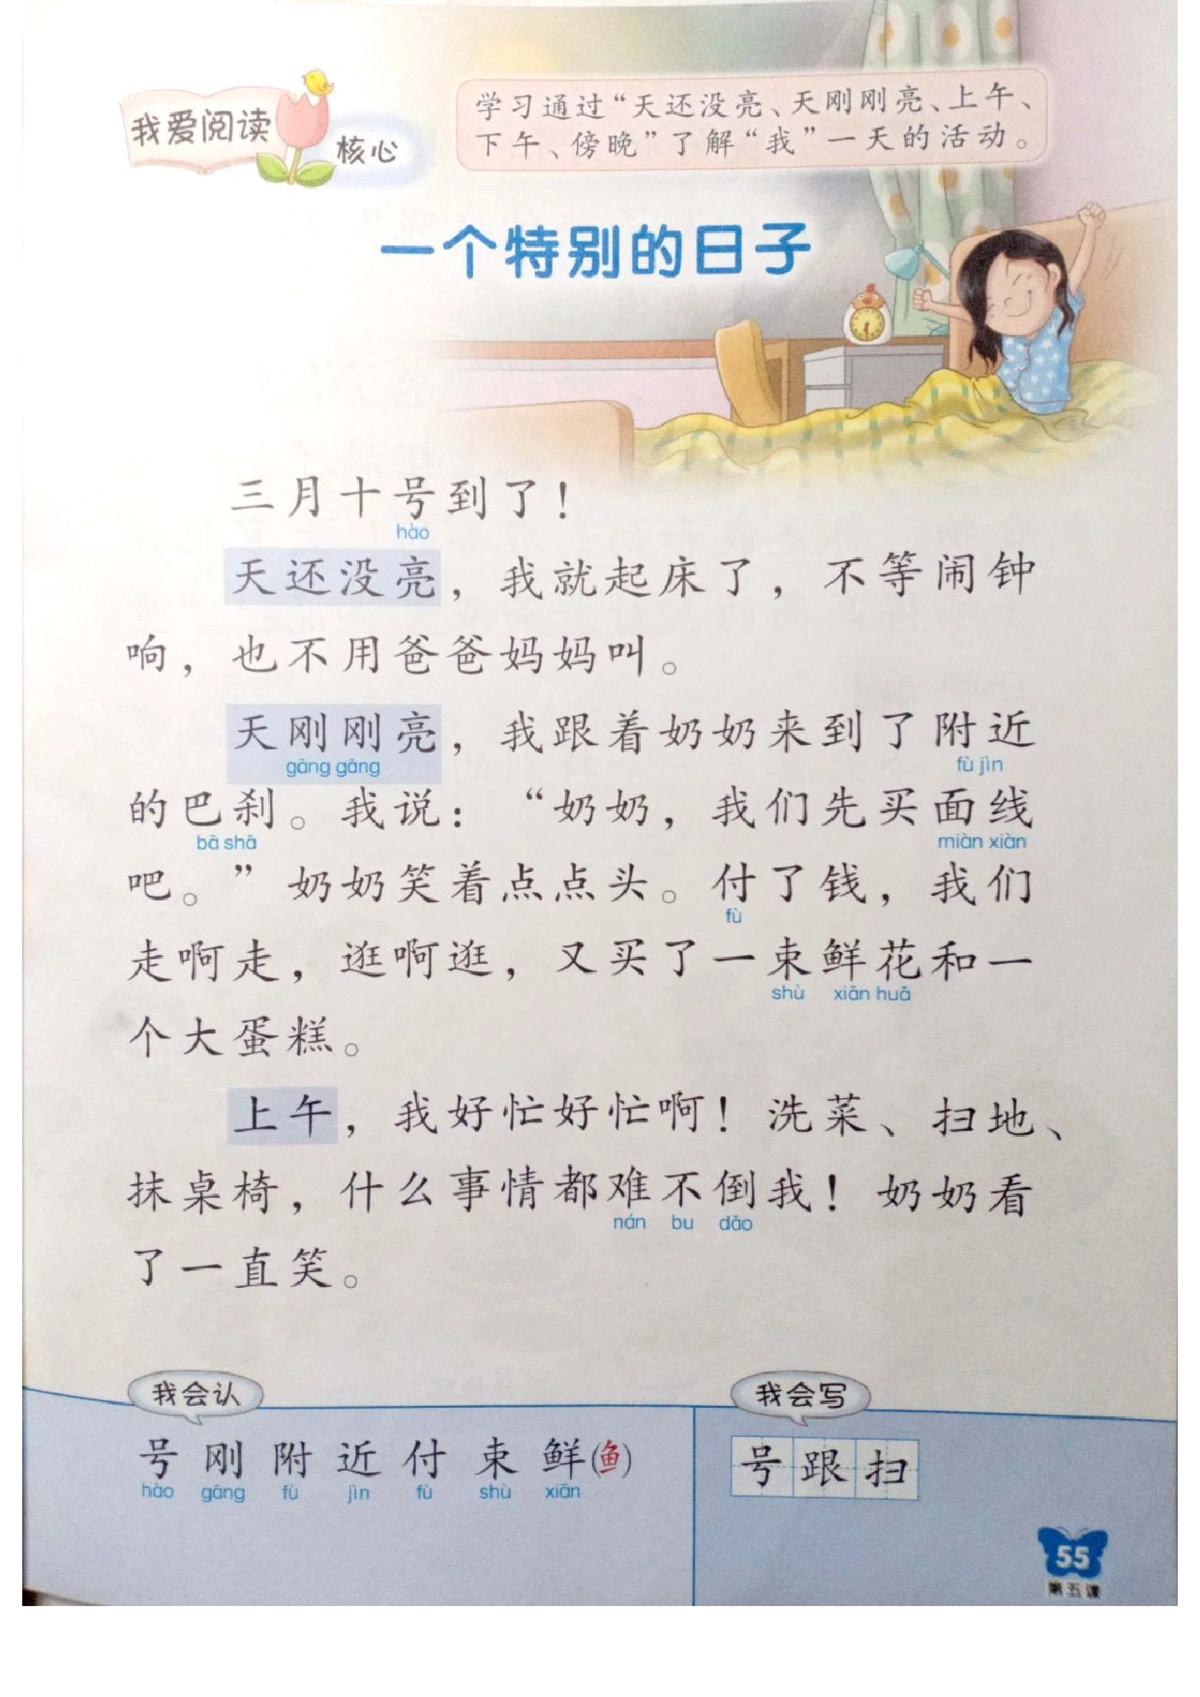 我爱阅读
核心
学习通过“天还没亮、天刚刚亮、上午、
下午、傍晚”了解“我”一天的活动。
一个特别的日子
三月十号到了！
hào
天还没亮，我就起床了，不等闹钟
响，也不用爸爸妈妈叫。
天刚刚亮，我跟着奶奶来到了附近
gāng gāng fù jìn
的巴刹。我说：“奶奶，我们先买面线
bā shā miàn xiàn
吧。”奶奶笑着点点头。付了钱，我们
fù
走啊走，逛啊逛，又买了一束鲜花和一
shù xiān huā
个大蛋糕。
上午，我好忙好忙啊！洗菜、扫地、
抹桌椅，什么事情都难不倒我！奶奶看
nán bu dǎo
了一直笑。
我会认
号 刚 附 近 付 束 鲜(鱼)
hào gāng fù jìn fù shù xiān
我会写
号 跟 扫
55
第五课